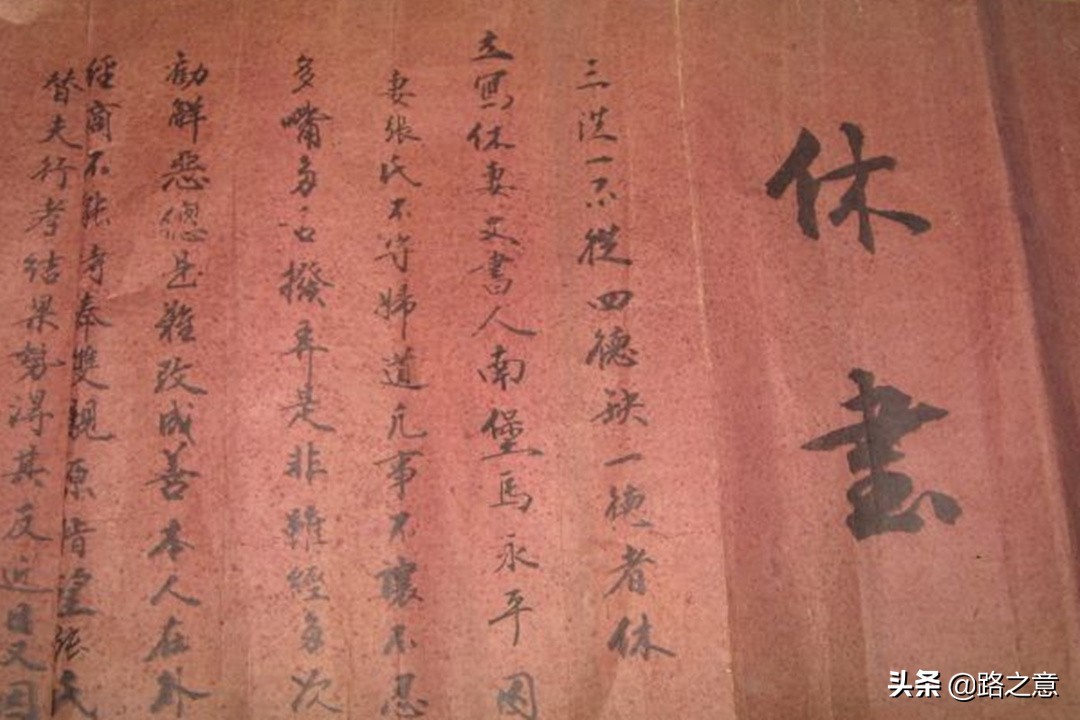 休書
三從一不從四德缺一德者休
立寫休妻文書人南堡馬永平因
妻張氏不守婦道凡事不讓不忍
多嘴多舌撥弄是非雖經多次
勸解惡總是難改成善本人在外
經商不奉雙親原指望張氏
替夫行孝結果勢得其反近日又因
头条 @路之意